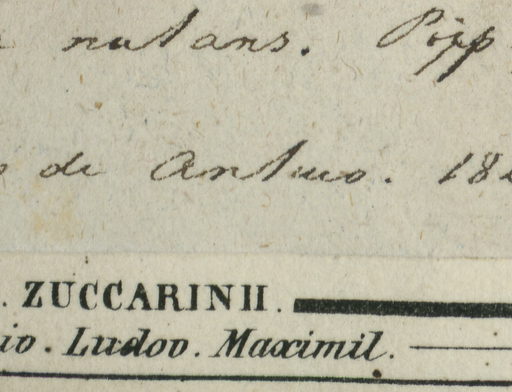 nutans. Pöpp
de Antuco. 18
. ZUCCARINII.
io. Ludov. Maximil.